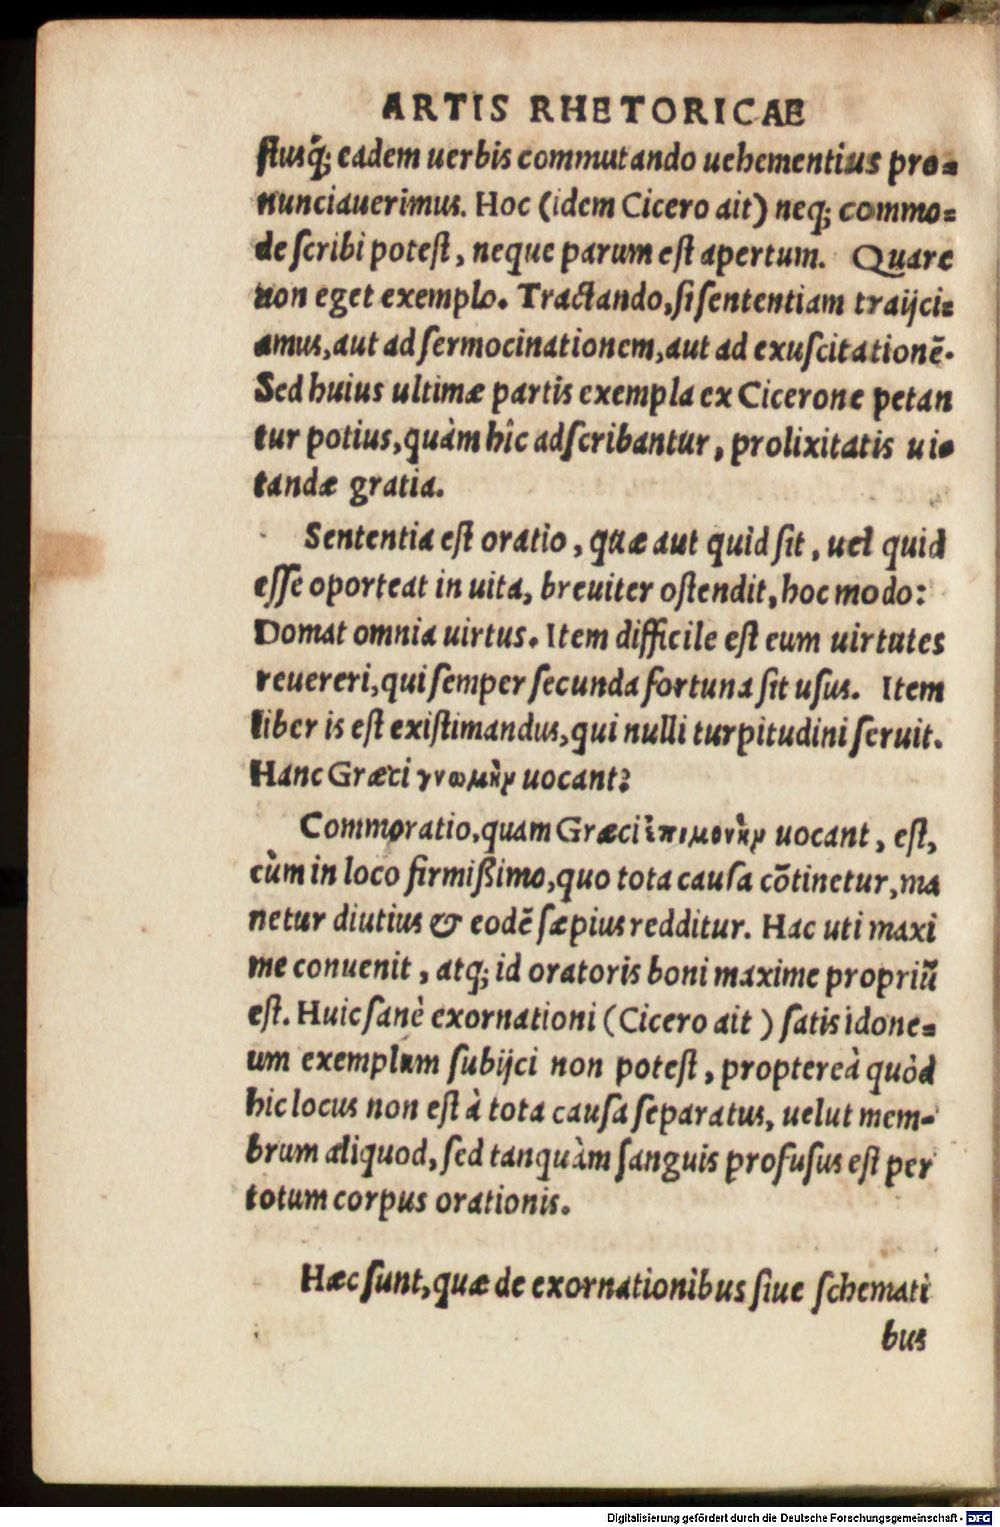 ARTIS RHETORICAE
stiusq́; eadem uerbis commutando uehementius pro=
nunciauerimus. Hoc (idem Cicero ait) neq; commo=
de scribi potest, neque parum est apertum. Quare
non eget exemplo. Tractando, si sententiam traijci=
amus, aut ad sermocinationem, aut ad exuscitationẽ.
Sed huius ultimæ partis exempla ex Cicerone petan
tur potius, quàm hîc adscribantur, prolixitatis ui=
tandæ gratia.
Sententia est oratio, quæ aut quid sit, uel quid
esse oporteat in uita, breuiter ostendit, hoc modo:
Domat omnia uirtus. Item difficile est eum uirtutes
reuereri, qui semper secunda fortuna sit usus. Item
liber is est existimandus, qui nulli turpitudini seruit.
Hanc Græci γνωμὴν uocant:
Commoratio, quam Græci ἐπιμονὴν uocant, est,
cùm in loco firmißimo, quo tota causa cõtinetur, ma
netur diutius & eodẽ sæpius redditur. Hac uti maxi
me conuenit, atq; id oratoris boni maxime propriũ
est. Huic sanè exornationi (Cicero ait) satis idone=
um exemplum subijci non potest, proptereà quòd
hic locus non est à tota causa separatus, uelut mem-
brum aliquod, sed tanquàm sanguis profusus est per
totum corpus orationis.
Hæc sunt, quæ de exornationibus siue schemati
bus
Digitalisierung gefördert durch die Deutsche Forschungsgemeinschaft - DFG